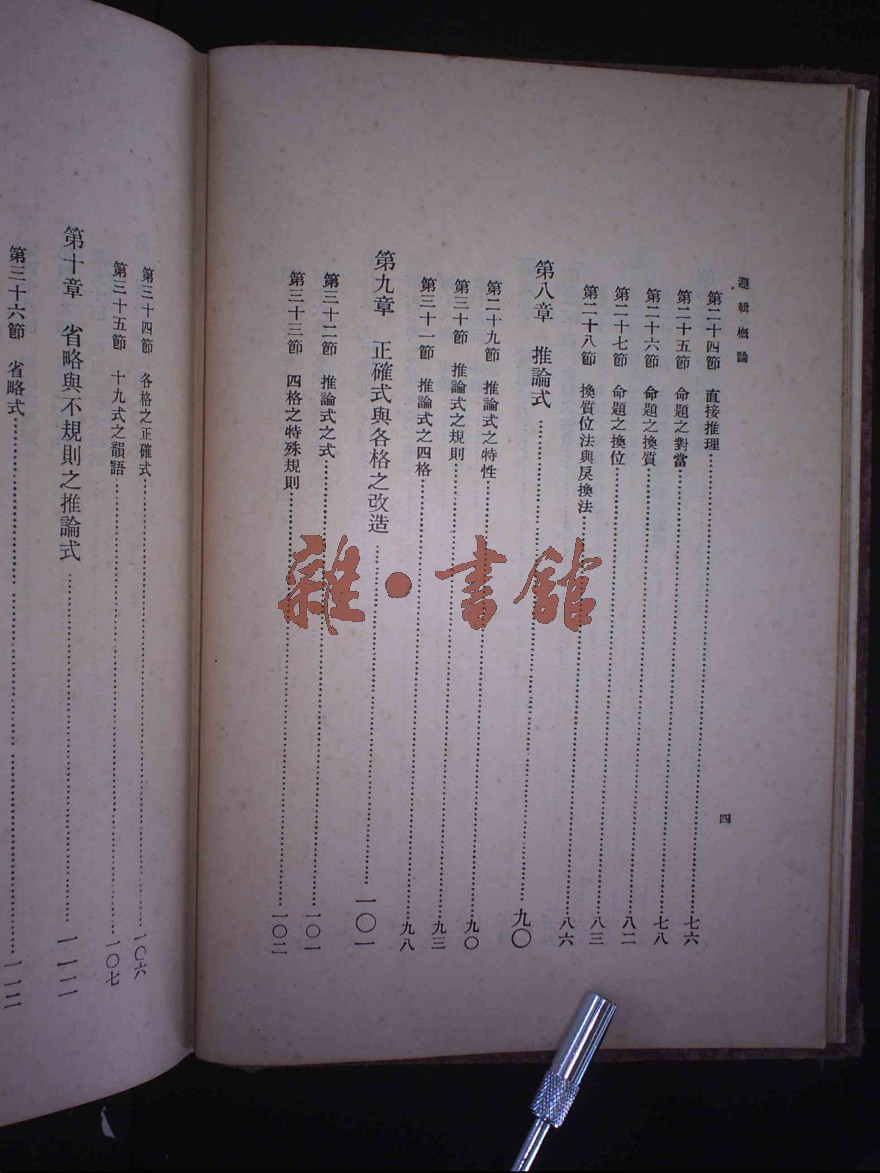 邏輯概論
四
第二十四節 直接推理……七六
第二十五節 命題之對當……七八
第二十六節 命題之換質……八二
第二十七節 命題之換位……八三
第二十八節 換質位法與戾換法……八六
第八章 推論式……九〇
第二十九節 推論式之特性……九〇
第三十節 推論式之規則……九三
第三十一節 推論式之四格……九八
第九章 正確式與各格之改造……一〇一
第三十二節 推論式之式……一〇一
第三十三節 四格之特殊規則……一〇二
第三十四節 各格之正確式……一〇六
第三十五節 十九式之韻語……一〇七
第十章 省略與不規則之推論式
第三十六節 省略式
雜·書館